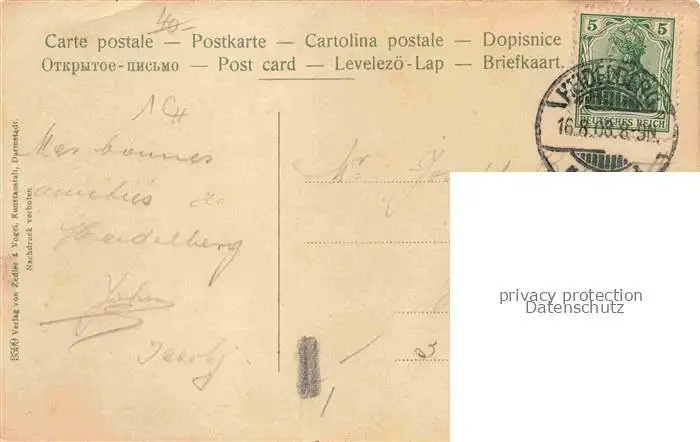 40-
Carte postale — Postkarte — Cartolina postale — Dopisnice
Открытое-письмо — Post card — Levelező-Lap — Briefkaart.
5 5
DEUTSCHES REICH
HEIDELBERG
16.8.08.8-9N.
Mes bonnes
amitiés de
Heidelberg
Jacoby.
Mr.
Verlag von Zedler & Vogel, Kunstanstalt, Darmstadt.
Nachdruck verboten.
privacy protection
Datenschutz